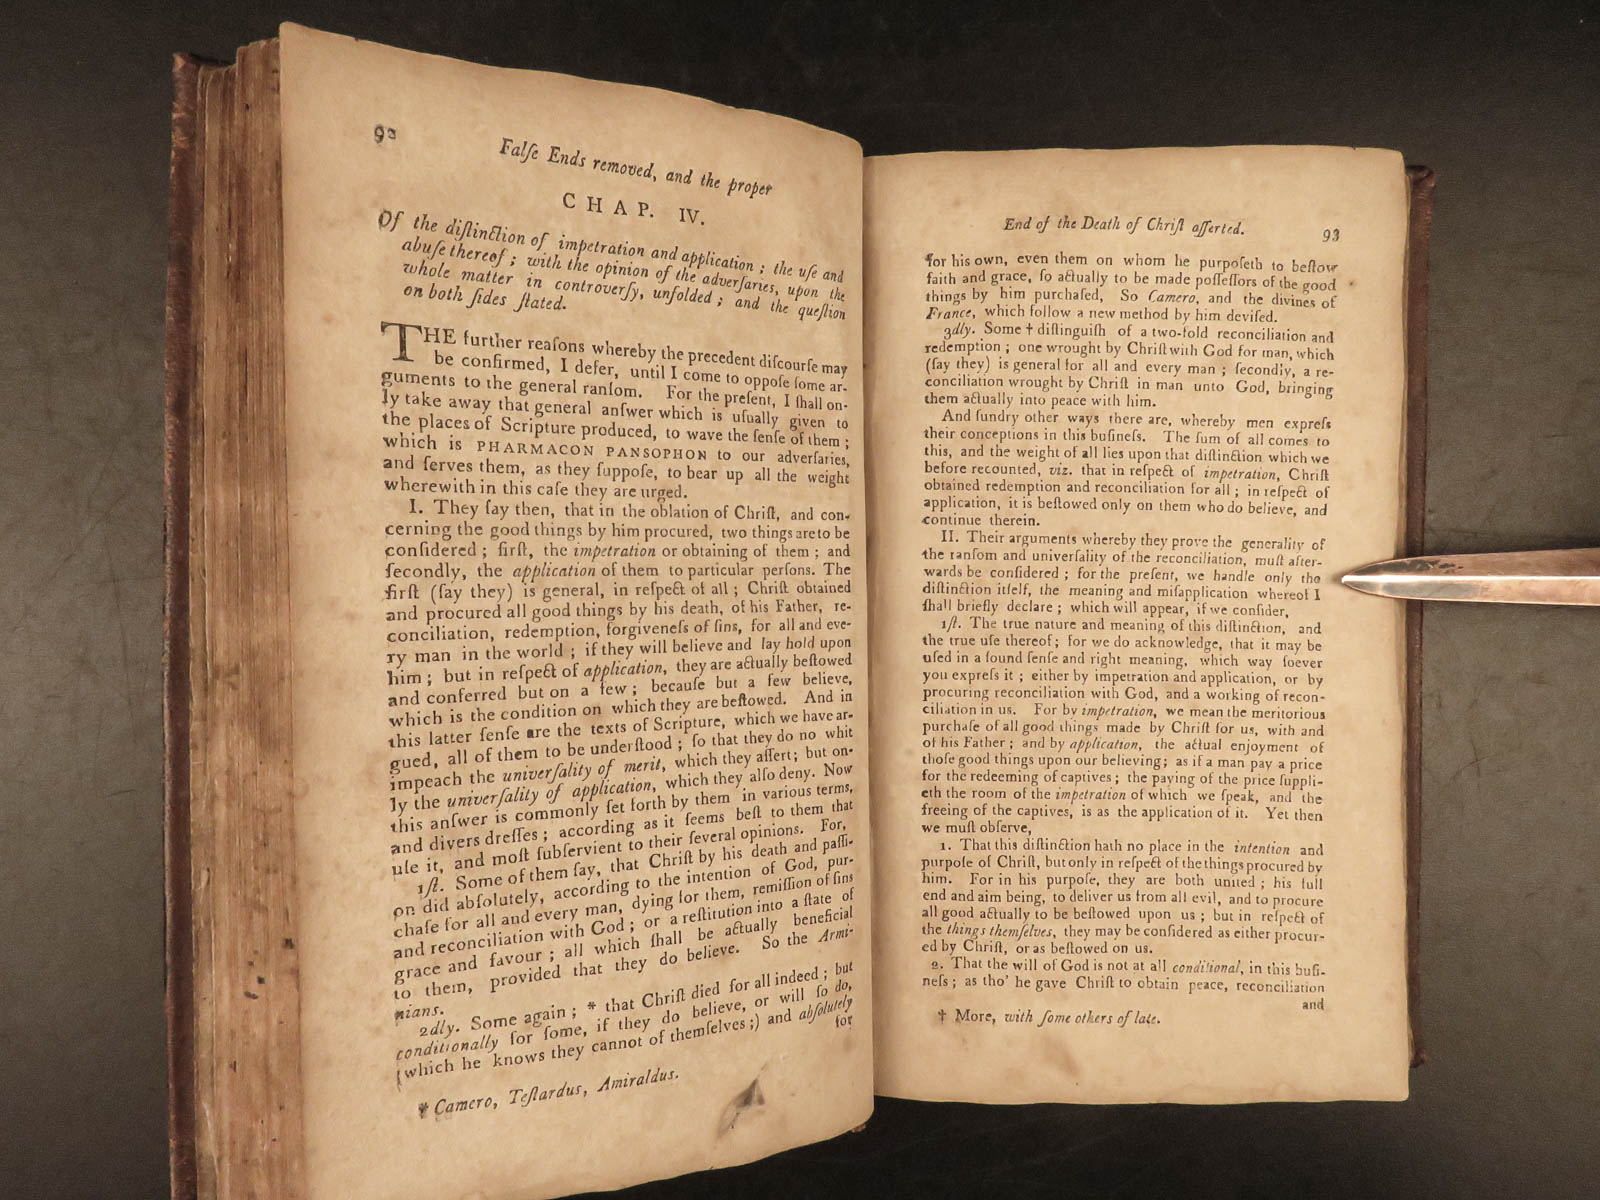 92
Falſe Ends removed, and the proper
CHAP. IV.
Of the diſtinction of impetration and application; the uſe and
abuſe thereof; with the opinion of the adverſaries, upon the
whole matter in controverſy, unfolded; and the queſtion
on both ſides ſtated.
THE further reaſons whereby the precedent diſcourſe may
be confirmed, I defer, until I come to oppoſe ſome ar-
guments to the general ranſom. For the preſent, I ſhall on-
ly take away that general anſwer which is uſually given to
the places of Scripture produced, to wave the ſenſe of them;
which is PHARMACON PANSOPHON to our adverſaries,
and ſerves them, as they ſuppoſe, to bear up all the weight
wherewith in this caſe they are urged.
I. They ſay then, that in the oblation of Chriſt, and con-
cerning the good things by him procured, two things are to be
conſidered; firſt, the impetration or obtaining of them; and
ſecondly, the application of them to particular perſons. The
firſt (ſay they) is general, in reſpect of all; Chriſt obtained
and procured all good things by his death, of his Father, re-
conciliation, redemption, forgiveneſs of ſins, for all and eve-
ry man in the world; if they will believe and lay hold upon
him; but in reſpect of application, they are actually beſtowed
and conferred but on a few; becauſe but a few believe,
which is the condition on which they are beſtowed. And in
this latter ſenſe are the texts of Scripture, which we have ar-
gued, all of them to be underſtood; ſo that they do no whit
impeach the univerſality of merit, which they aſſert; but on-
ly the univerſality of application, which they alſo deny. Now
this anſwer is commonly ſet forth by them in various terms,
and divers dreſſes; according as it ſeems beſt to them that
uſe it, and moſt ſubſervient to their ſeveral opinions. For,
1ſt. Some of them ſay, that Chriſt by his death and paſſi-
on did abſolutely, according to the intention of God, pur-
chaſe for all and every man, dying for them, remiſſion of ſins
and reconciliation with God; or a reſtitution into a ſtate of
grace and favour; all which ſhall be actually beneficial
to them, provided that they do believe. So the Armi-
nians.
2dly. Some again; * that Chriſt died for all indeed; but
conditionally for ſome, if they do believe, or will ſo do,
(which he knows they cannot of themſelves;) and abſolutely
for
* Camero, Teſtardus, Amiraldus.
End of the Death of Chriſt aſſerted.
93
for his own, even them on whom he purpoſeth to beſtow
faith and grace, ſo actually to be made poſſeſſors of the good
things by him purchaſed, So Camero, and the divines of
France, which follow a new method by him deviſed.
3dly. Some † diſtinguiſh of a two-fold reconciliation and
redemption; one wrought by Chriſt with God for man, which
(ſay they) is general for all and every man; ſecondly, a re-
conciliation wrought by Chriſt in man unto God, bringing
them actually into peace with him.
And ſundry other ways there are, whereby men expreſs
their conceptions in this buſineſs. The ſum of all comes to
this, and the weight of all lies upon that diſtinction which we
before recounted, viz. that in reſpect of impetration, Chriſt
obtained redemption and reconciliation for all; in reſpect of
application, it is beſtowed only on them who do believe, and
continue therein.
II. Their arguments whereby they prove the generality of
the ranſom and univerſality of the reconciliation, muſt after-
wards be conſidered; for the preſent, we handle only the
diſtinction itſelf, the meaning and miſapplication whereof I
ſhall briefly declare; which will appear, if we conſider,
1ſt. The true nature and meaning of this diſtinction, and
the true uſe thereof; for we do acknowledge, that it may be
uſed in a ſound ſenſe and right meaning, which way ſoever
you expreſs it; either by impetration and application, or by
procuring reconciliation with God, and a working of recon-
ciliation in us. For by impetration, we mean the meritorious
purchaſe of all good things made by Chriſt for us, with and
of his Father; and by application, the actual enjoyment of
thoſe good things upon our believing; as if a man pay a price
for the redeeming of captives; the paying of the price ſuppli-
eth the room of the impetration of which we ſpeak, and the
freeing of the captives, is as the application of it. Yet then
we muſt obſerve,
1. That this diſtinction hath no place in the intention and
purpoſe of Chriſt, but only in reſpect of the things procured by
him. For in his purpoſe, they are both united; his full
end and aim being, to deliver us from all evil, and to procure
all good actually to be beſtowed upon us; but in reſpect of
the things themſelves, they may be conſidered as either procur-
ed by Chriſt, or as beſtowed on us.
2. That the will of God is not at all conditional, in this buſi-
neſs; as tho' he gave Chriſt to obtain peace, reconciliation
and
† More, with ſome others of late.